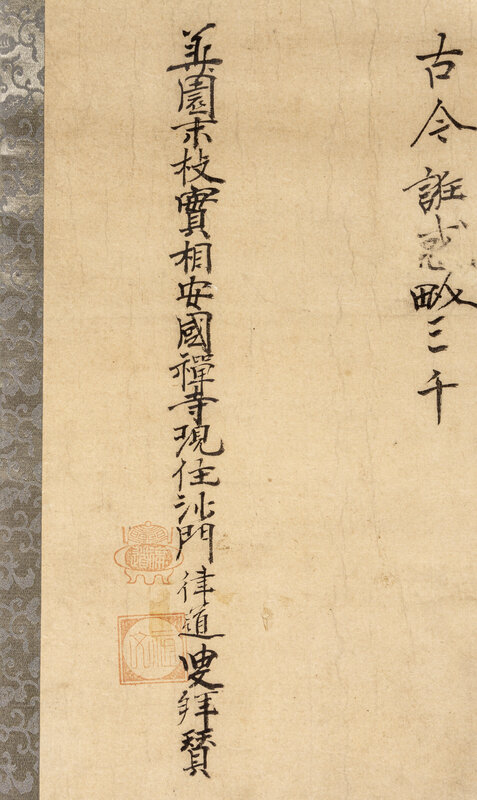 古今誰惑三千
華園末枝實相安國禪寺現住沙門律道叟拜贊